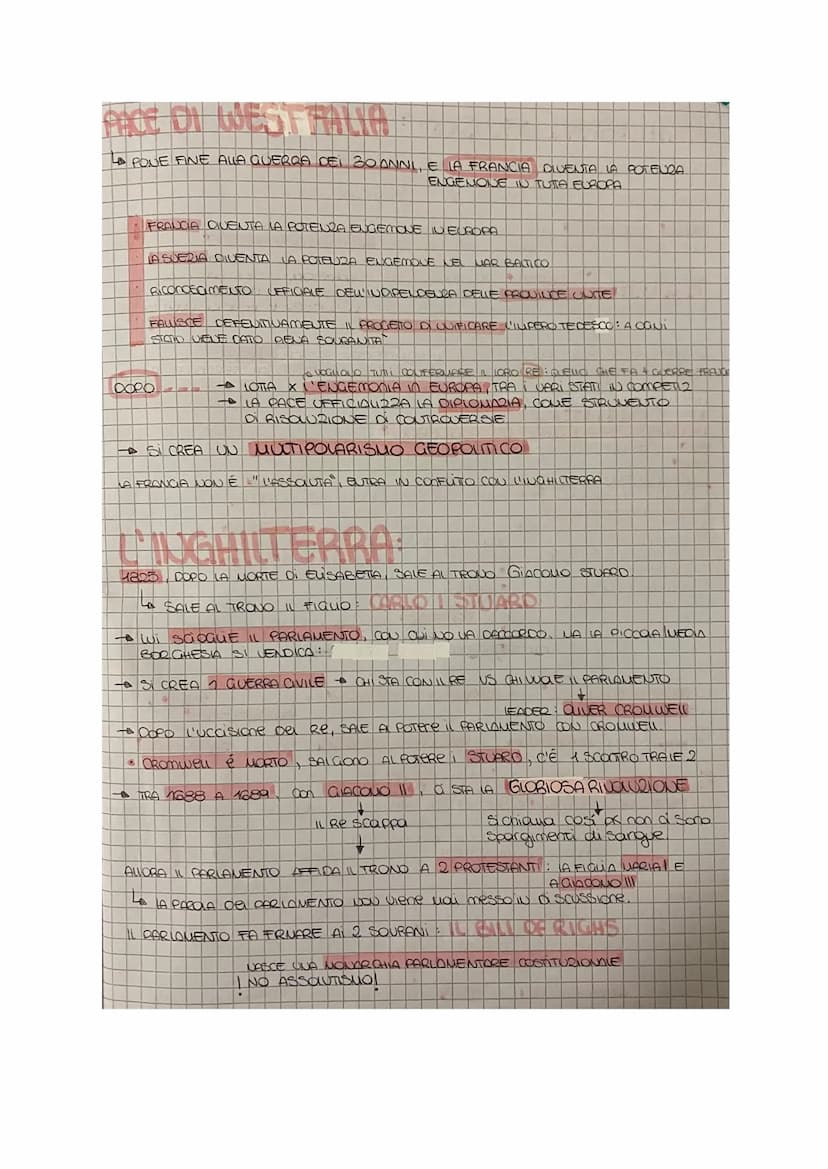 PACE DI WESTFALIA
↳ PONE FINE ALLA GUERRA DEI 30 ANNI, E LA FRANCIA DIVENTA LA POTENZA
ENGEMONE IN TUTA EUROPA
FRANCIA DIVENTA LA POTENZA ENGEMONE IN EUROPA
LA SVEZIA DIVENTA LA POTENZA ENGEMONE NEL MAR BALTICO
RICONOSCIMENTO UFFICIALE DELL'INDIPENDENZA DELLE PROVINCE UNITE
FALLISCE DEFENITIVAMENTE IL PROGETO DI UNIFICARE L'IMPERO TEDESCO: A OGNI
STATO VIENE DATO PIENA SOVRANITÀ
VOGLIONO TUTTI CONFERMARE IL LORO RE: QUELLO CHE FA + GUERRE
DOPO → LOTTA X L'ENGEMONIA IN EUROPA, TRA I VARI STATI IN COMPETIZ
→ LA PACE UFFICIALIZZA LA DIPLOMAZIA, COME STRUMENTO
DI RISOLUZIONE DI CONTROVERSIE
→ SI CREA UN MULTIPOLARISMO GEOPOLITICO
LA FRANCIA NON É "L'ASSOLUTA", ENTRA IN CONFLITO CON L'INGHILTERRA
L'INGHILTERRA:
1825, DOPO LA MORTE DI ELISABETTA, SALE AL TRONO GIACOMO STUARD.
↳ SALE AL TRONO IL FIGLIO: CARLO I STUARD
→ LUI SCIOGLIE IL PARLAMENTO, CON CUI NO VA DACCORDO. MA LA PICCOLA/MEDIA
BORGHESIA SI VENDICA:
→ SI CREA 1 GUERRA CIVILE → CHI STA CON IL RE VS CHI VUOLE IL PARLAMENTO
↓
LEADER: OLIVER CROMWELL
→ DOPO L'UCCISIONE DEL RE, SALE A POTERE IL PARLAMENTO CON CROMWELL.
• CROMWELL É MORTO, SALGONO AL POTERE I STUARD, C'É 1 SCONTRO TRA LE 2
→ TRA 1688 A 1689, CON GIACOMO II, CI STA LA GLORIOSA RIVOLUZIONE
↓ ↓
IL RE SCAPPA si chiama cosi' pk non ci sono
↓ spargimenti di sangue.
ALLORA IL PARLAMENTO AFFIDA IL TRONO A 2 PROTESTANTI: LA FIGLIA MARIA I E
A GIACOMO III
↳ LA PAROLA DEL PARLAMENTO NON VIENE MAI MESSO IN DISCUSSIONE.
IL PARLAMENTO FA FRMARE AI 2 SOVRANI: IL BILL OF RIGHS
NASCE UNA MONARCHIA PARLAMENTORE COSTITUZIONALE
! NO ASSOLUTISMO!